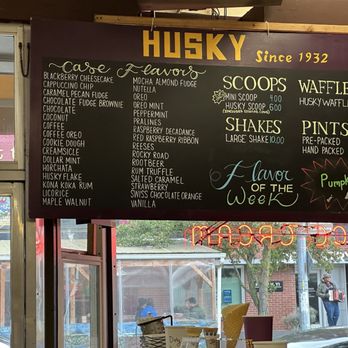 HUSKY Since 1932
Case Flavors
BLACKBERRY CHEESECAKE
CAPPUCCINO CHIP
CARAMEL PECAN FUDGE
CHOCOLATE FUDGE BROWNIE
CHOCOLATE
COCONUT
COFFEE
COFFEE OREO
COOKIE DOUGH
CREAMSICLE
DOLLAR MINT
HORCHATA
HUSKY FLAKE
KONA KOKA RUM
LICORICE
MAPLE WALNUT
MOCHA ALMOND FUDGE
NUTELLA
OREO
OREO MINT
PEPPERMINT
PRALINES
RASPBERRY DECADANCE
RED RASPBERRY RIBBON
REESES
ROCKY ROAD
ROOTBEER
RUM TRUFFLE
SALTED CARAMEL
STRAWBERRY
SWISS CHOCOLATE ORANGE
VANILLA
SCOOPS
MINI SCOOP 4.00
HUSKY SCOOP 6.00
SHAKES
LARGE SHAKE 10.00
Flavor
OF THE
Week
WAFFLE
HUSKY WAFFLE
PINTS
PRE-PACKED
HAND PACKED
Pump